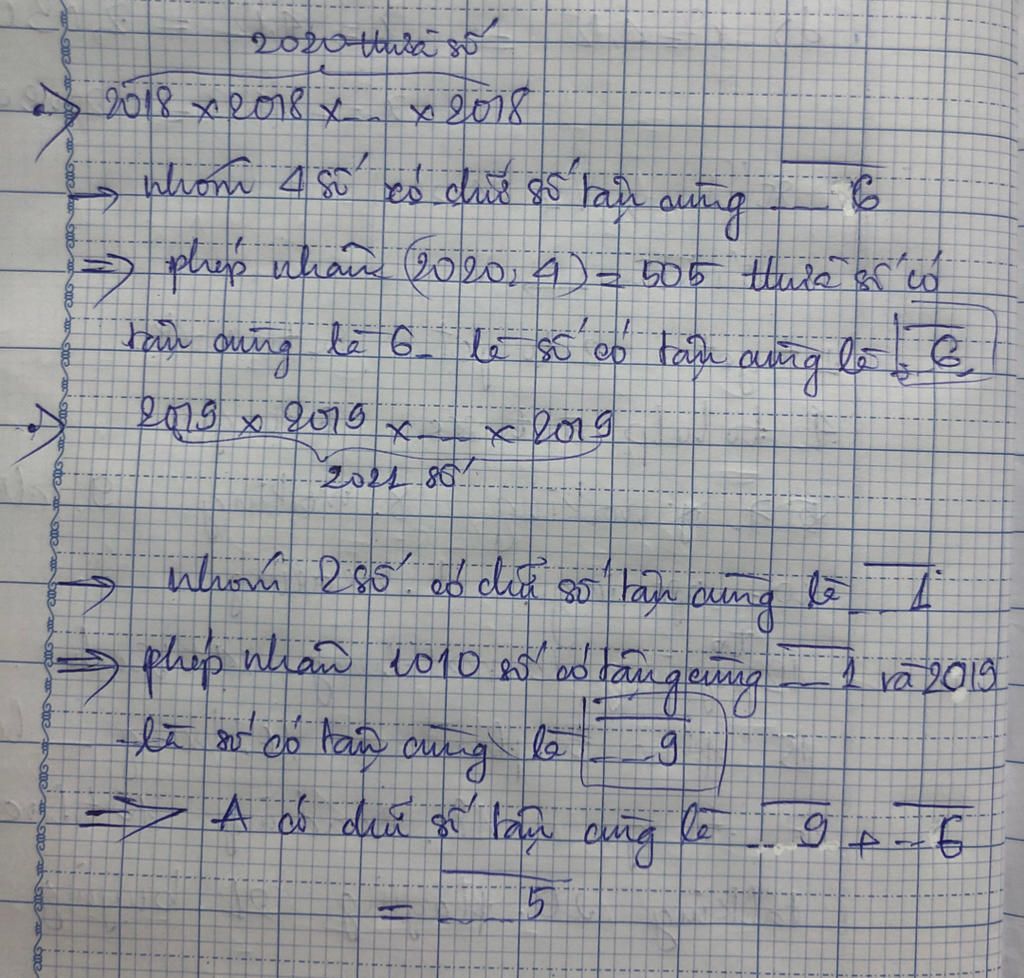 2020 thừa số
2018 x 2018 x ... x 2018
→ nhóm 4 số có chữ số tận cùng ...6
=> phép nhân (2020:4) = 505 thừa số có
tận cùng là 6 là số có tận cùng là ...6
2019 x 2019 x ... x 2019
2021 số
→ nhóm 2 số có chữ số tận cùng là ...1
=> phép nhân 1010 số có tận cùng ...1 và 2019
là số có tận cùng là ...9
=> A có chữ số tận cùng là ...9 + ...6
= ...5